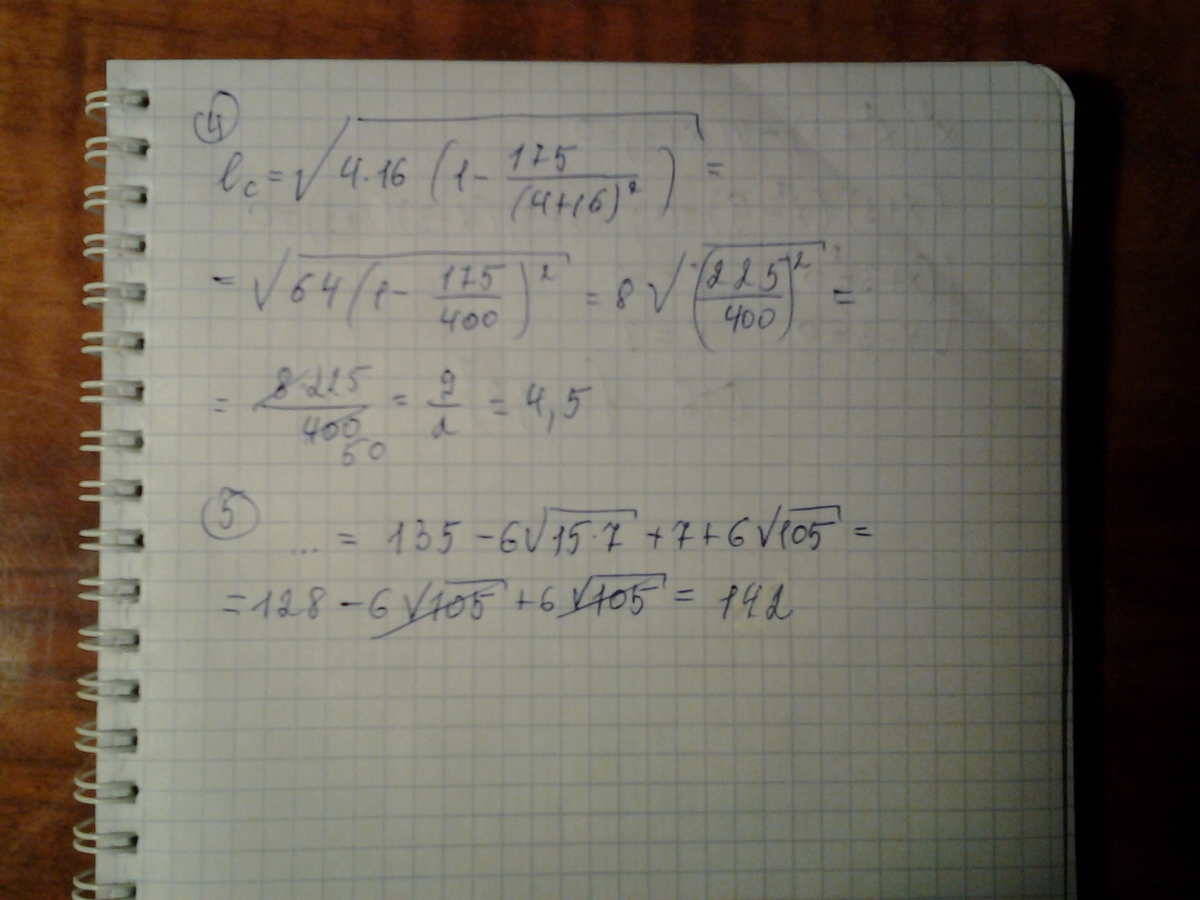 ④
l_c = √(4·16 (1 - 175/(4+16)²)) =
= √(64(1 - 175/400)²) = 8√((225/400)²) =
= 8·225/400 50 = 9/2 = 4,5
⑤
... = 135 - 6√(15·7) + 7 + 6√105 =
= 128 - 6√105 + 6√105 = 142